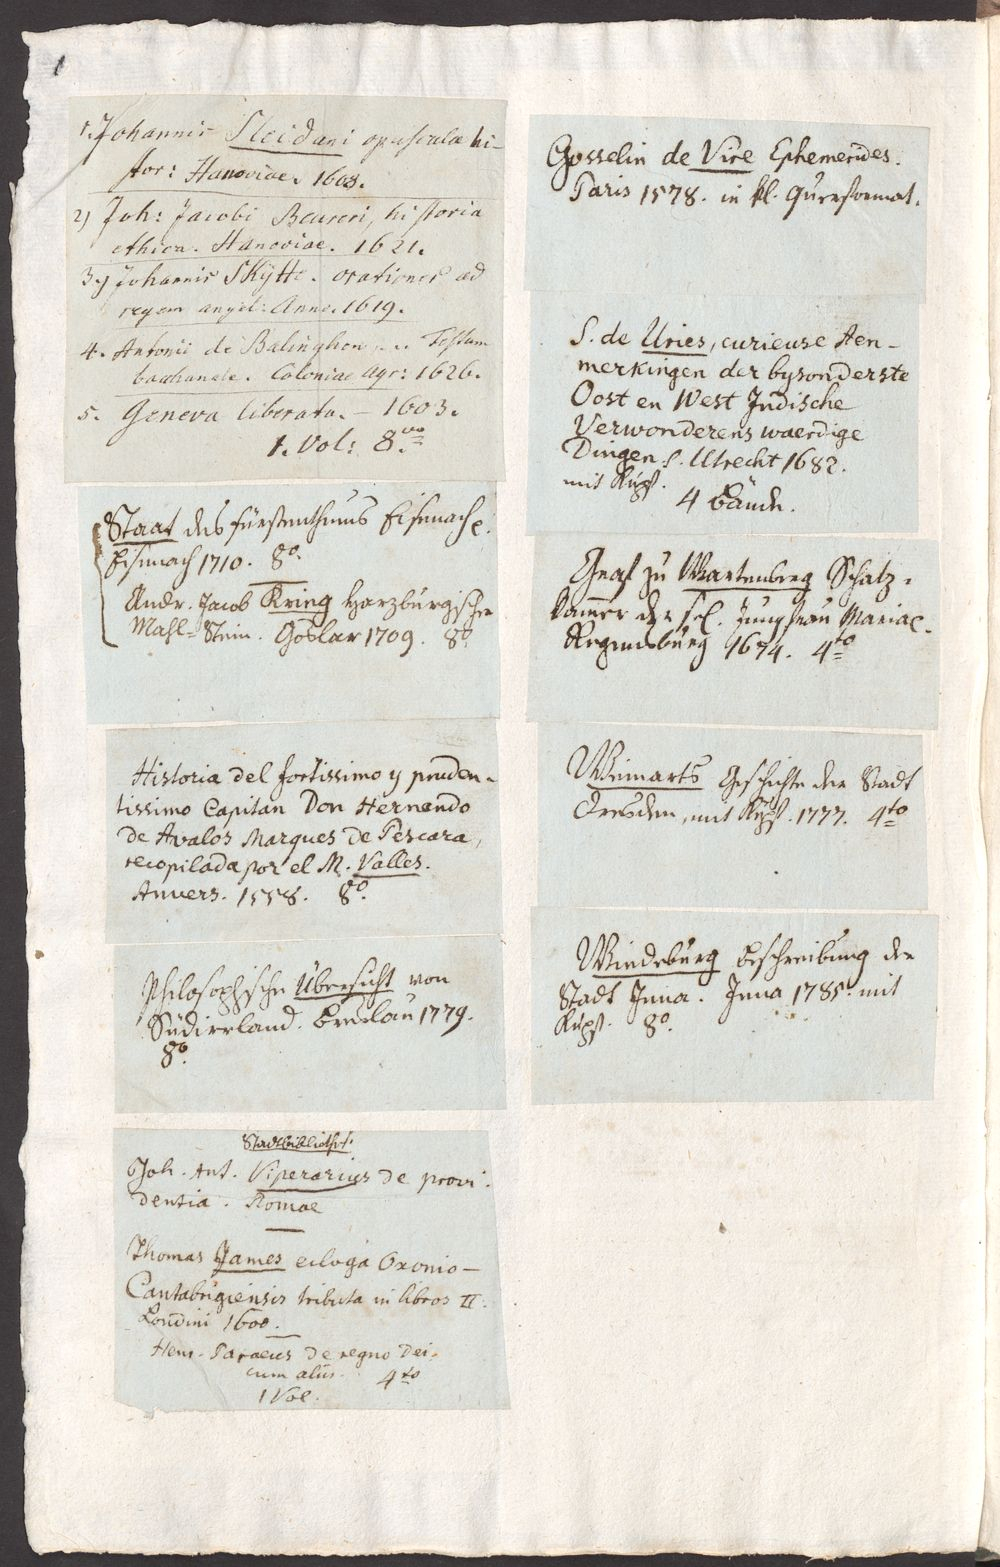 1
1. Johannis Sleidani opuscula hi-
stor: Hanoviae. 1608.
2) Joh: Jacobi Beureri, historia
ethica. Hanoviae. 1621.
3) Johannis Skytte. orationes ad
regem angl: Anno. 1619.
4. Antonii de Balinghen
bacchanale. Coloniae agr: 1626.
5. Geneva liberata. – 1603.
1. Vol: 8.vo
Staat des fürstenthums Eisenach.
Eisenach 1710. 8o.
Andr. Jacob Kring Harzburgischer
Mahl-Stein. Goslar 1709. 8o
Historia del fortissimo y pruden-
tissimo Capitan Don Hernando
de Avalos Marques de Pescara,
recopilada por el M. Valles.
Anvers. 1558. 8o.
Philosophische Übersicht von
Südirrland. Breslau 1779.
8o.
Stadtbibliothek.
Joh. Ant. Viperarius de provi-
dentia. Romae
Thomas James ecloga Oxonio-
Cantabrigiensis tributa in libros II.
Londini 1600.
Henr. Paraeus de regno Dei.
cum aliis. 4to
1 Vol.
Gosselin de Vire Ephemerides.
Paris 1578. in kl. Querformat.
S. de Uries, curieuse Aen-
merkingen der bysonderste
Oost en West Indische
Verwonderens waerdige
Dingen. Utrecht 1682.
mit Kupf.
4 Bände.
Graf zu Wartenberg Schatz-
kammer der sel. Jungfrau Mariae.
Regensburg 1674. 4to
Weinarts Geschichte der Stadt
Dresden, mit Kupf. 1777. 4to
Wiedeburg Beschreibung der
Stadt Jena. Jena 1785. mit
Kupf. 8o.